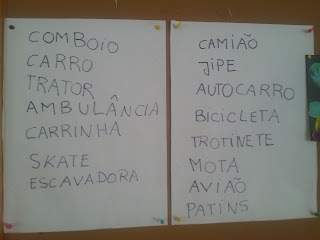 COMBOIO
CARRO
TRATOR
AMBULÂNCIA
CARRINHA
SKATE
ESCAVADORA
CAMIÃO
JIPE
AUTOCARRO
BICICLETA
TROTINETE
MOTA
AVIÃO
PATINS